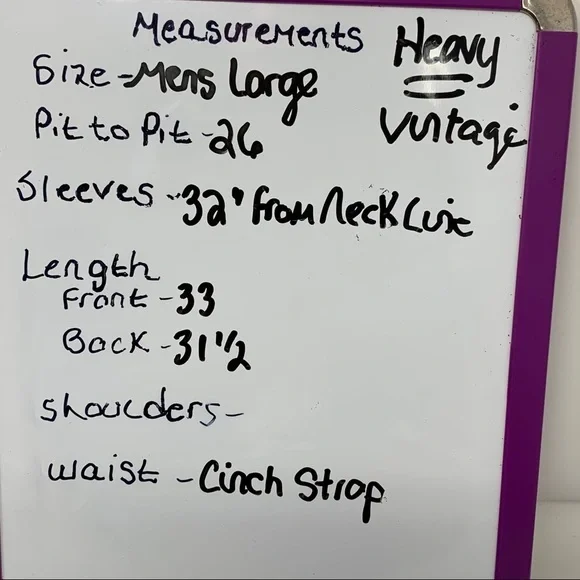 Measurements
Heavy
Vintage
Size - Mens Large
Pit to Pit - 26
Sleeves - 32" from Neck Line
Length
Front - 33
Back - 31 1/2
Shoulders -
waist - Cinch Strap